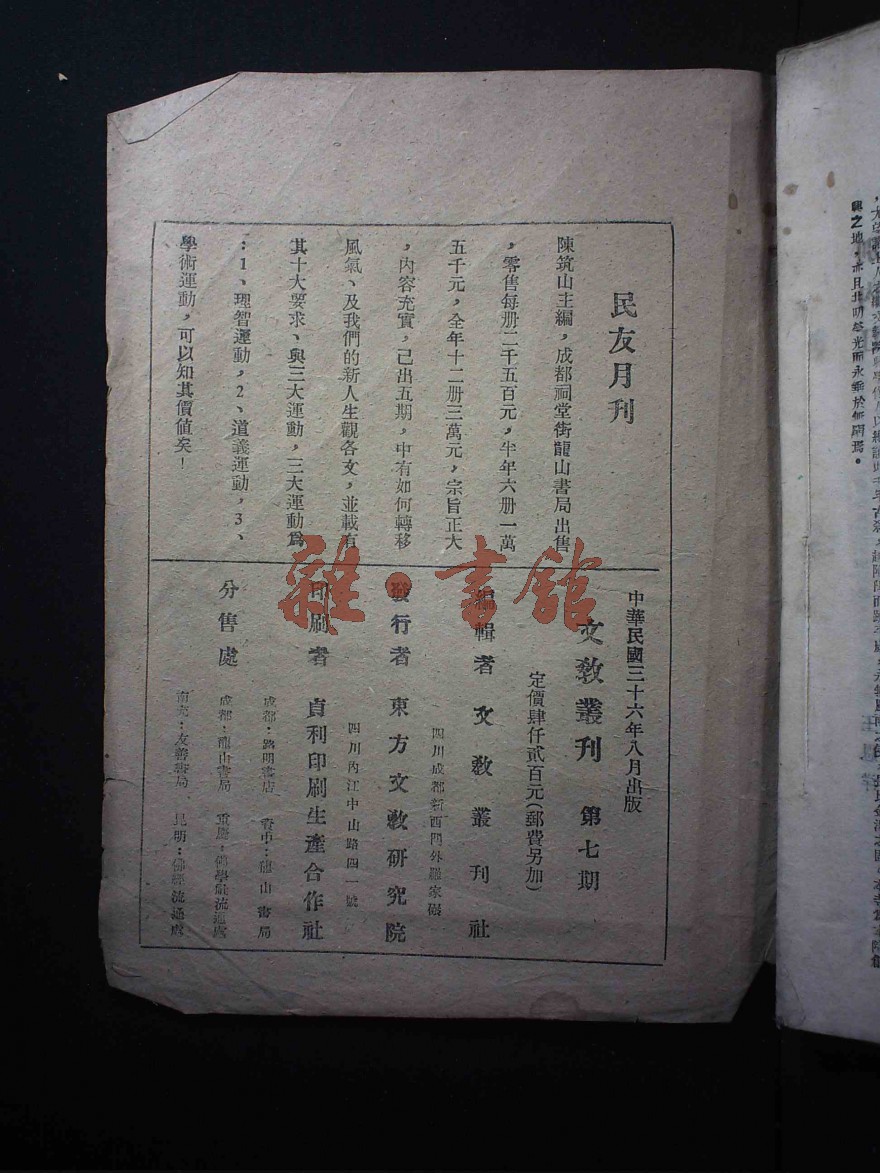 民友月刊
陳筑山主編，成都祠堂街龍山書局出售
，零售每册二千五百元，半年六册一萬
五千元，全年十二册三萬元，宗旨正大
，內容充實，已出五期，中有如何轉移
風氣、及我們的新人生觀各文，並載有
其十大要求、與三大運動，三大運動爲
：1、理智運動，2、道義運動，3、
學術運動，可以知其價值矣！
中華民國三十六年八月出版
文教叢刊 第七期
定價肆仟貳百元(郵費另加)
編輯者 文教叢刊社
四川成都新西門外羅家碾
發行者 東方文教研究院
四川內江中山路四一號
印刷者 貞利印刷生產合作社
分售處
成都：路明書店
龍山書局
成都：龍山書局
重慶：佛學 流通處
南充：友善書局
昆明：佛經流通處
雜·書館
興之地，亦且北
光而永垂於無窮焉。